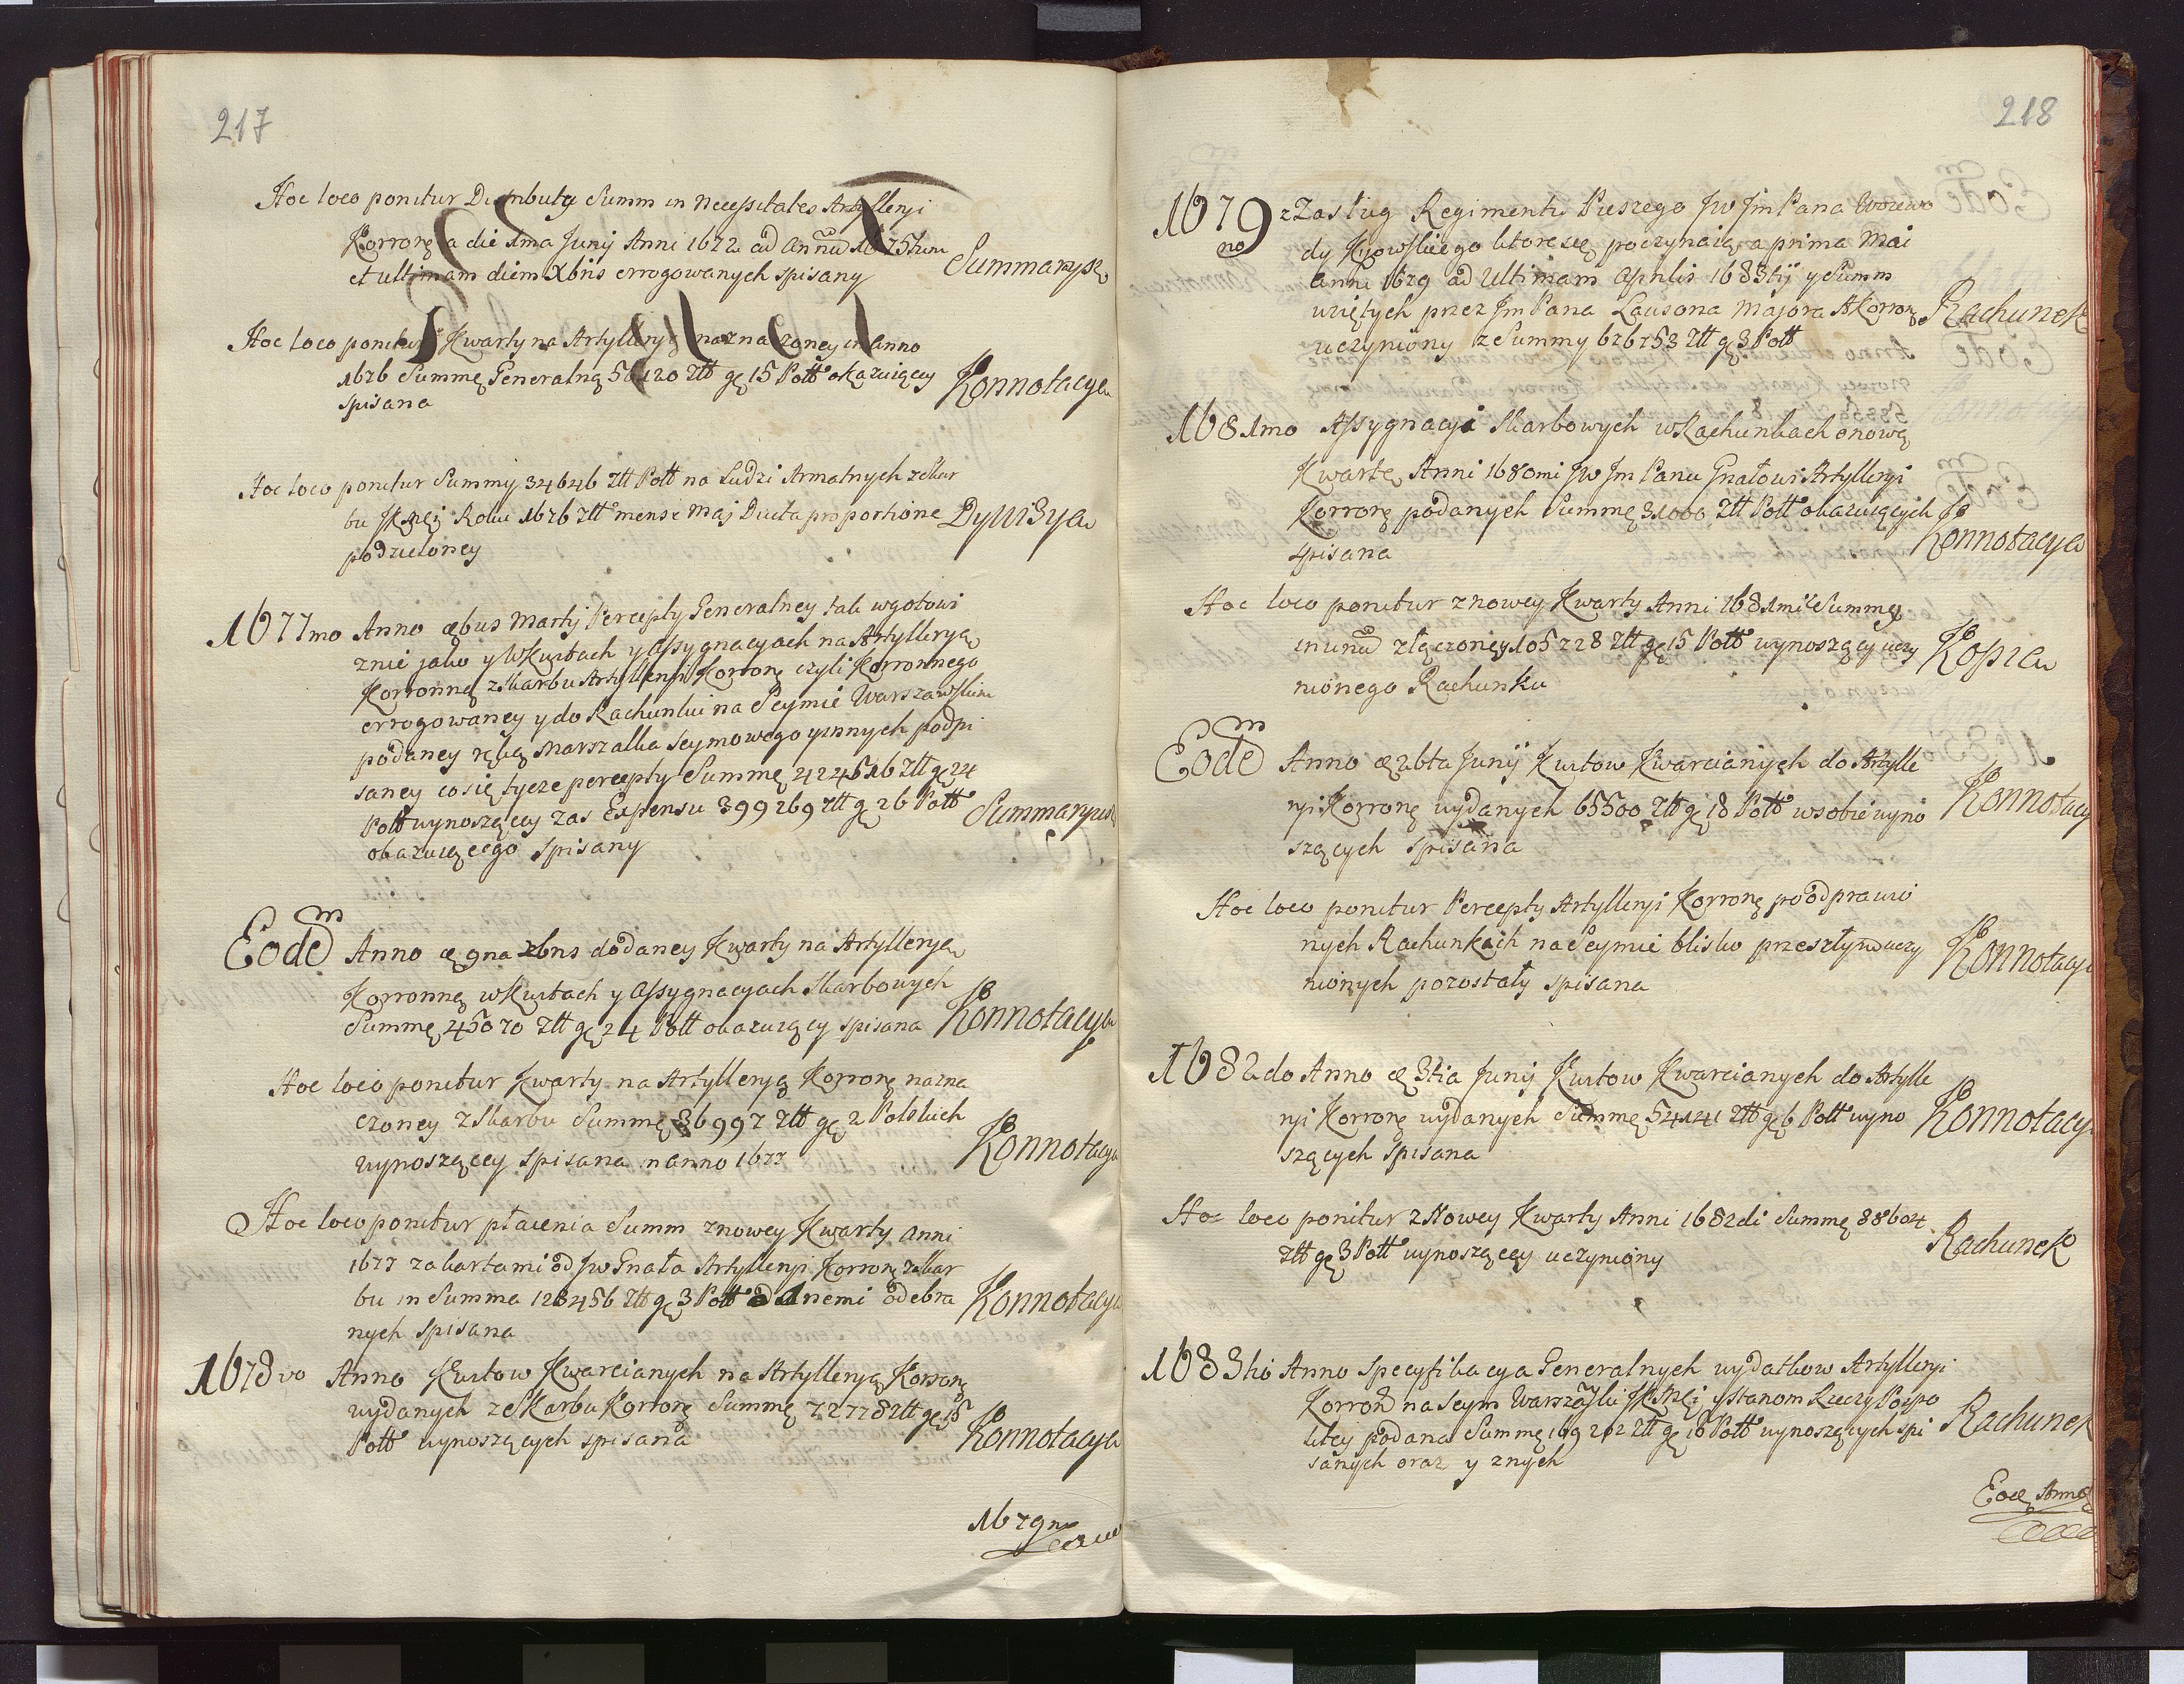 217
Hoc loco ponitur Dystrybuty Summ in necessitates Artylleryi
Korronę a die 1ma Junij Anni 1672 ad annū 1675tum
et ultimam diem Xbris errogowanych spisany Summarysz
Hoc loco ponitur Kwarty na Artylleryą naznaczoney in anno
1676 Summę Generalną 56120 Złł gę 15 Poll okazuiący
spisana Konnotacya
Hoc loco ponitur Summy 34646 Złł Poll na Ludzi Armatnych z Skar
bu JKMci Roku 1676 mense Maj Ducta proportione
podzieloney Dywizya
1677mo Anno Marty Percepty Generalney tak w gotowi
znie jako y w Kwitach y assygnacyach na Artylleryą
Korronną z Skarbu Artylleryi Korronę czyli Korronnego
errogowaney y do Rachunku na Seymie Warszawskim
podaney ręką Marszałka Seymowego y innych podpi
saney co się tycze percepty Summę 424516 Złł gę 24
Poll wynoszący zas Expensu 399269 Złł gę 26 Poll
okazuiącego spisany Summaryusz
Eodē Anno 9na Xbris dodaney Kwarty na Artylleryą
Korronną w Kwitach y assygnacyach Skarbowych
Summę 45070 Złł gę 24 Poll okazuiący spisana Konnotacya
Hoc loco ponitur Kwarty na Artylleryą Korronę nazna
czoney z Skarbu Summę 36997 Złł gę 2 Polskich
wynoszący spisana in anno 1677 Konnotacya
Hoc loco ponitur płacenia Summ z nowey Kwarty anni
1677 za kartami od Jw Gnała Artylleryi Korronę z Skar
bu in Summa 128456 Złł gę 3 Poll odebra
nych spisana Konnotacya
1678vo Anno Kwitow Kwarcianych na Artylleryą Korronę
wydanych z Skarbu Korronę Summę 72778 Złł gę 15
Poll wynoszących spisana Konnotacya
1679no
218
1679no z Zasług Regimentu Pieszego Jw Jm Pana Woiewo
dy Kijowskiego ktore się poczynaią a prima Mai
anni 1679 ad Ultimam Aprilis 1683tij y Summ
wziętych przez Jm Pana Lausona Majora A Korronę
uczyniony z Summy 626753 Złł gę 3 Poll Rachunek
1681mo Assygnacyi Skarbowych w Rachunkach o nową
Kwartę Anni 1680mi Jw Jm Panu Gnałowi Artylleryi
Korronę podanych Summę 31000 Złł Poll okazuiących
spisana Konnotacya
Hoc loco ponitur z nowey Kwarty Anni 1681mi Summę
in unū złączoney 105728 Złł gę 15 Poll wynoszący uczy
nionego Rachunku Kopia
Eodē Anno Junij Kwitow Kwarcianych do Artylle
ryi Korronę wydanych 65500 Złł gę 18 Poll w sobie wyno
szących spisana Konnotacya
Hoc loco ponitur Percepty Artylleryi Korronę po odprawio
nych Rachunkach na Seymie blisko przeszłym uczy
nionych pozostały spisana Konnotacya
1682do Anno 3tia Junij Kwitow Kwarcianych do Artylle
ryi Korronę wydanych Summę 54141 Złł gę 6 Poll wyno
szących spisana Konnotacya
Hoc loco ponitur z Nowey Kwarty Anni 1682di Summę 88604
Złł gę 3 Poll wynoszący uczyniony Rachunek
1683tio Anno Specyfikacya Generalnych wydatkow Artylleryi
Korroñ na Seym Warszawski JKMci y Stanom Rzeczy Pospo
litey podana Summę 169212 Złł gę 18 Poll wynoszących spi
sanych oraz y znych Rachunek
Eodę Anno